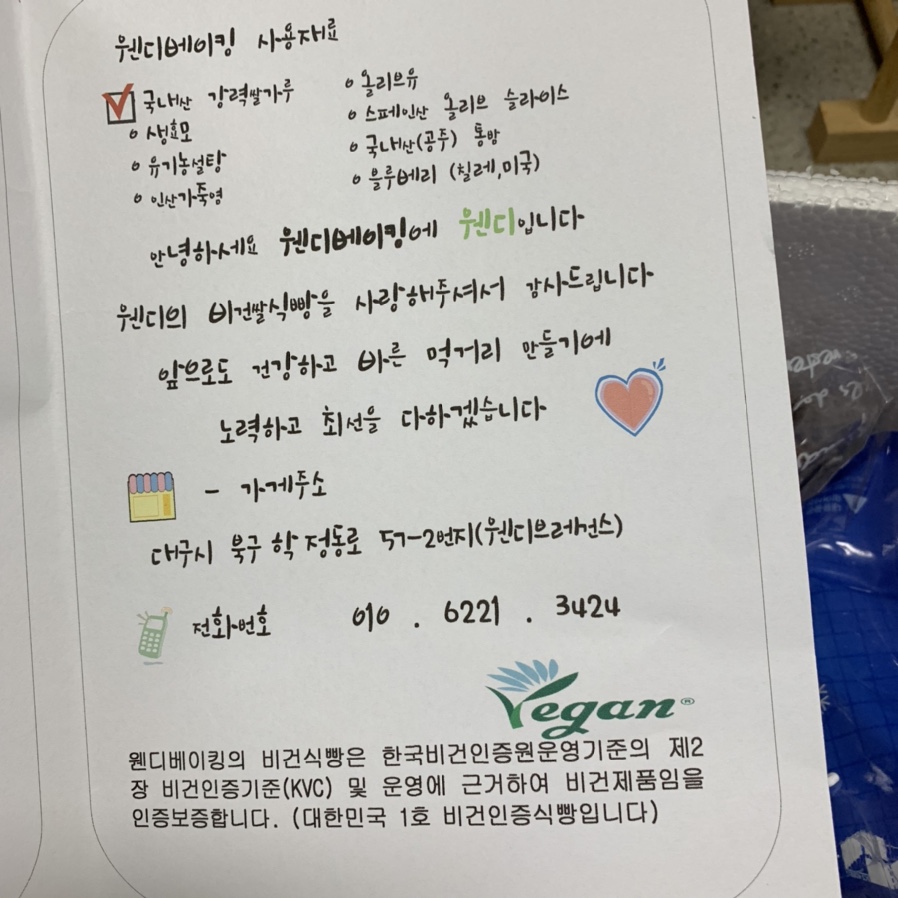 웬디베이킹 사용재료
국내산 강력쌀가루
생효모
유기농설탕
인산가죽염
올리브유
스페인산 올리브 슬라이스
국내산(공주) 통밤
블루베리 (칠레,미국)
안녕하세요 웬디베이킹에 웬디입니다
웬디의 비건쌀식빵을 사랑해주셔서 감사드립니다
앞으로도 건강하고 바른 먹거리 만들기에
노력하고 최선을 다하겠습니다
- 가게주소
대구시 북구 학정동로 57-2번지(웬디브레첸스)
전화번호 010 . 6221 . 3424
Vegan®
웬디베이킹의 비건식빵은 한국비건인증원운영기준의 제2
장 비건인증기준(KVC) 및 운영에 근거하여 비건제품임을
인증보증합니다. (대한민국 1호 비건인증식빵입니다)